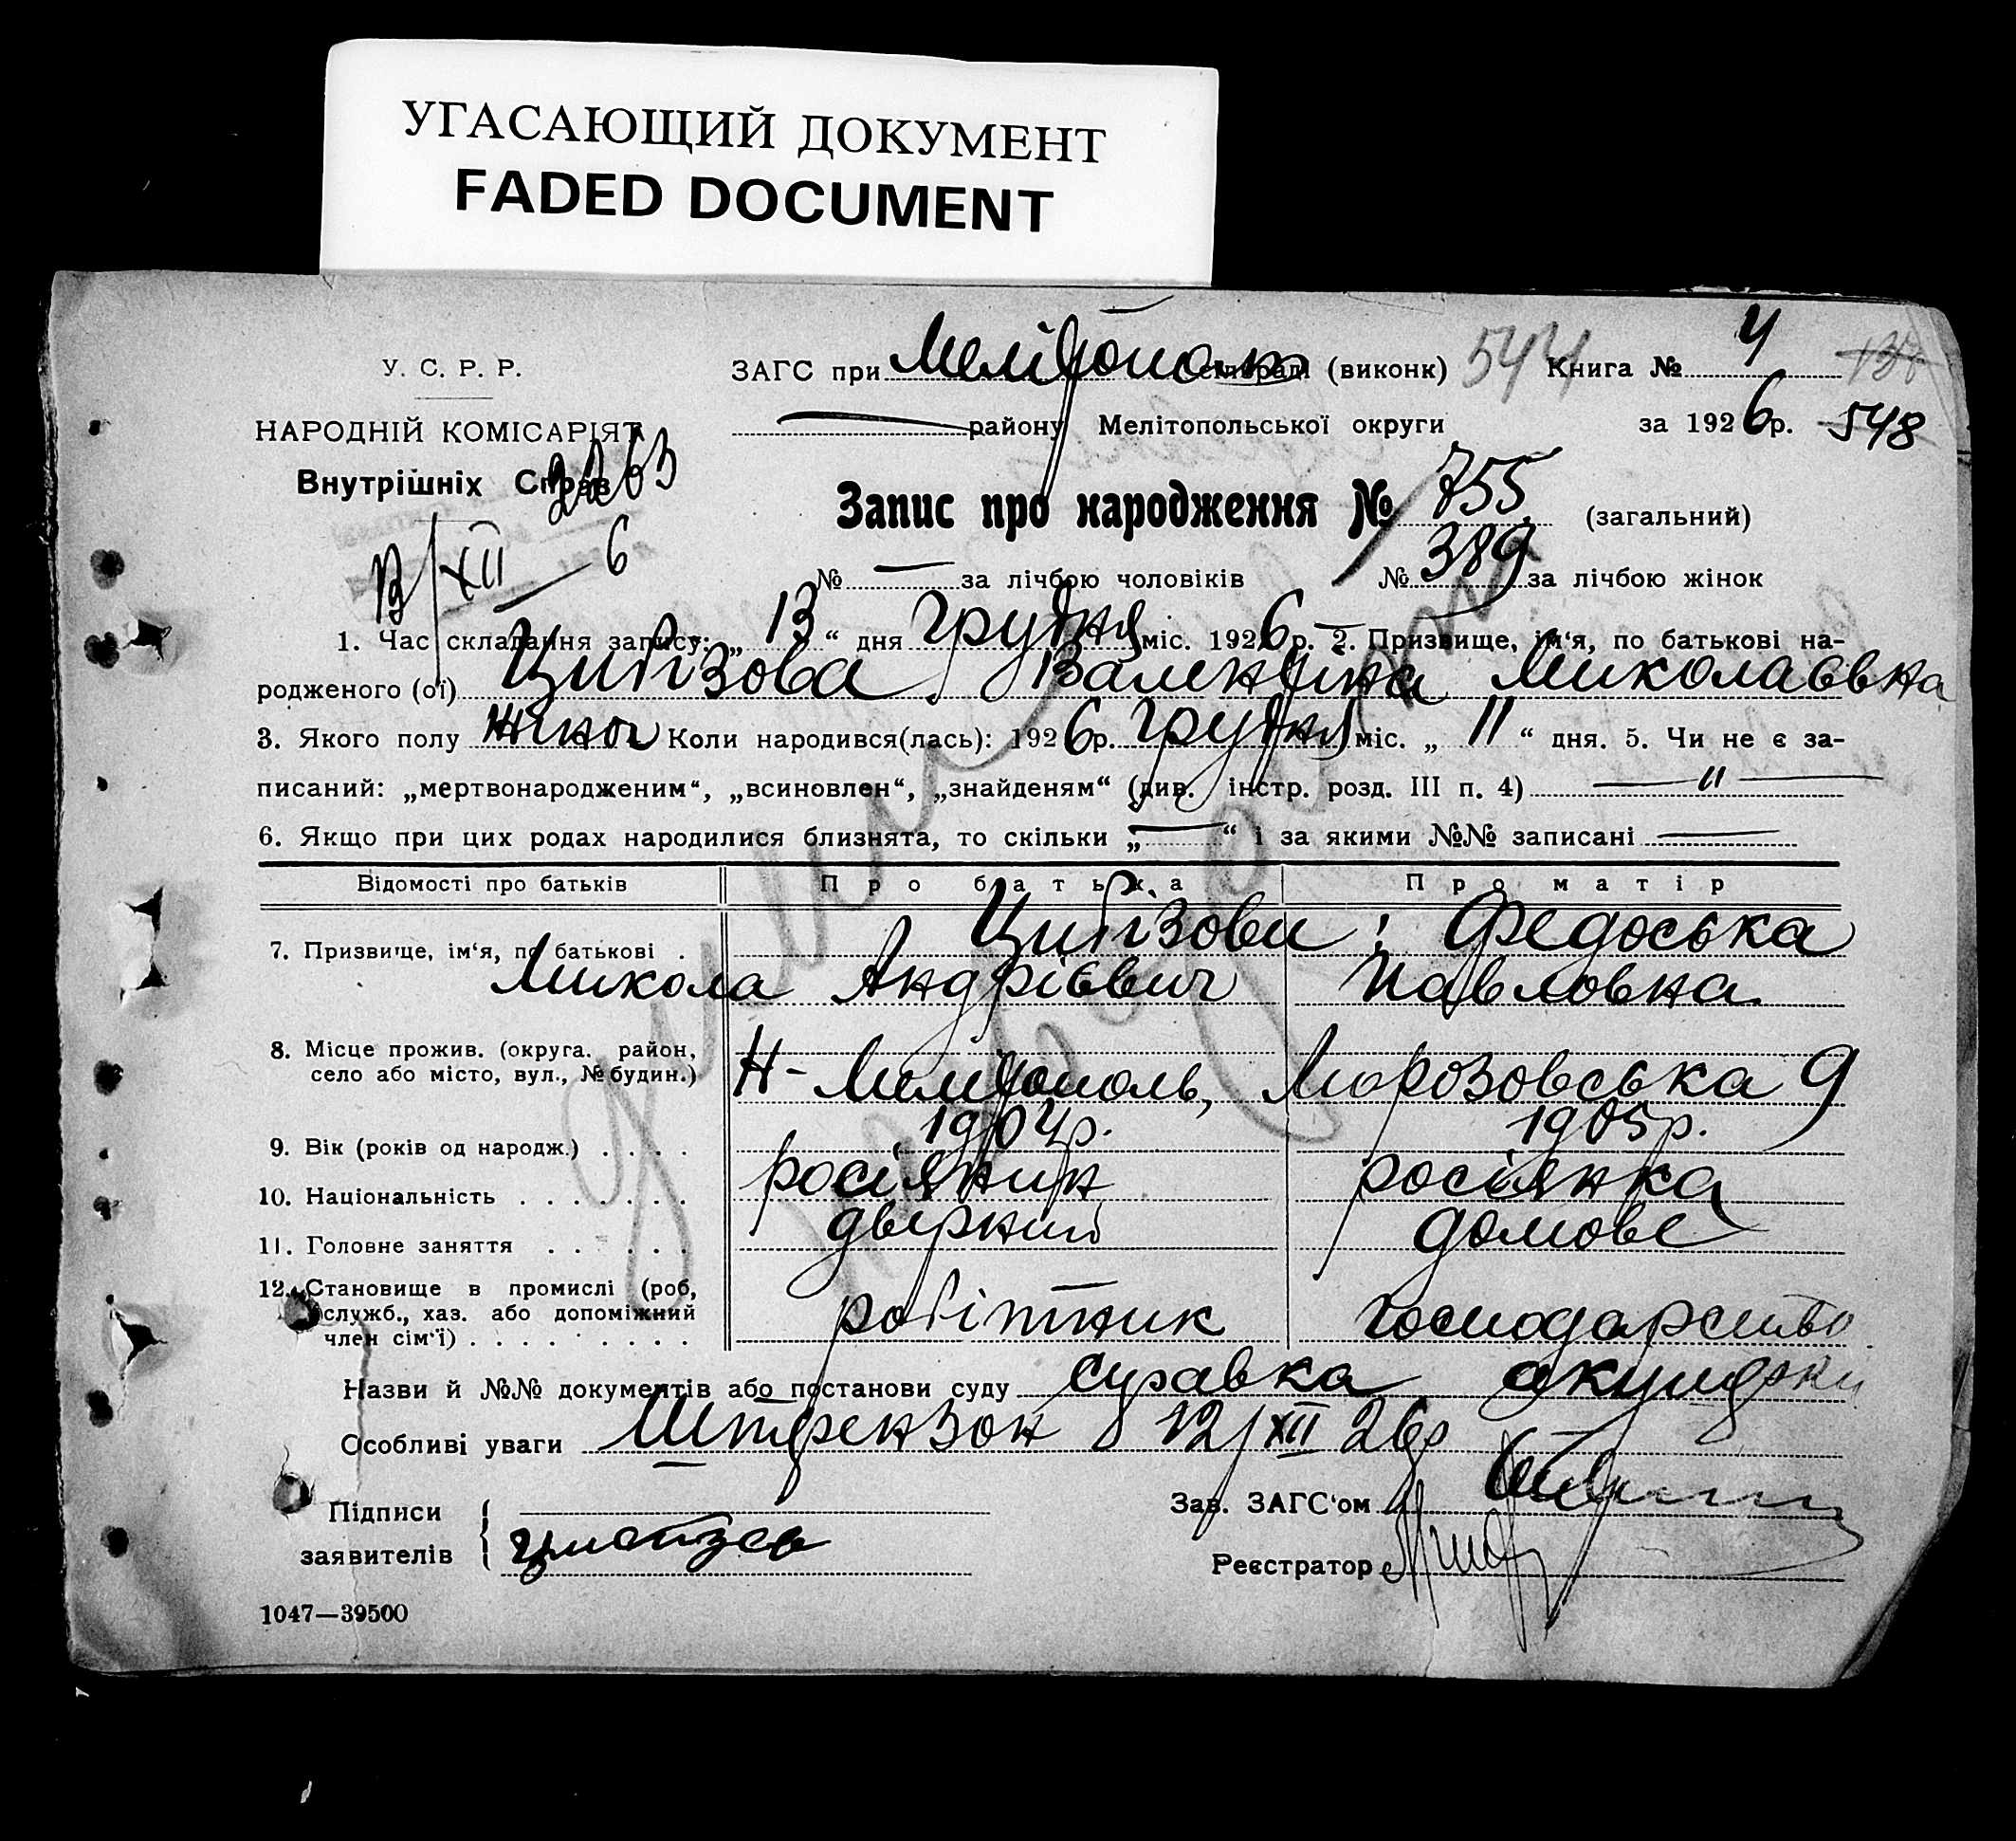 УГАСАЮЩИЙ ДОКУМЕНТ
FADED DOCUMENT
У. С. Р. Р.
НАРОДНІЙ КОМІСАРІЯТ
Внутрішніх Справ
2263
13/XII — 6
ЗАГС при Мелітополь сільраді (виконк) 544 Книга № 4
району Мелітопольської округи за 1926 р. 548
Запис про народження № 755 (загальний)
№ — за лічбою чоловіків № 389 за лічбою жінок
1. Час складання запису: „13“ дня грудня міс. 1926 р. 2. Призвище, ім‘я, по батькові на-
родженого (ої) Цибізова Валентина Миколаєвна
3. Якого полу жіноч Коли народився(лась): 1926 р. грудня міс. „11“ дня. 5. Чи не є за-
писаний: „мертвонародженим“, „всиновлен“, „знайденям“ (див. інстр. розд. III п. 4) — „ —
6. Якщо при цих родах народилися близнята, то скільки „—“ і за якими №№ записані —
Відомості про батьків Про батька Про матір
7. Призвище, ім‘я, по батькові . Цибізови: Федоська
Микола Андрієвич Павловна
8. Місце прожив. (округа. район,
село або місто, вул., № будин.) Н-Мелітополь, Морозовська 9
9. Вік (років од народж.) . . . . 1904р. 1905р.
10. Національність . . . . . . . росіянин росіянка
11. Головне заняття . . . . . . двірний домове
12. Становище в промислі (роб,
служб., хаз. або допоміжний
член сім‘ї) . . . . . . . . . робітник господарство
Назви й №№ документів або постанови суду справка акушерки
Особливі уваги Штерензон 12/XII 26р
Підписи
заявителів Цибізов
Зав. ЗАГС‘ом
Реєстратор
1047—39500